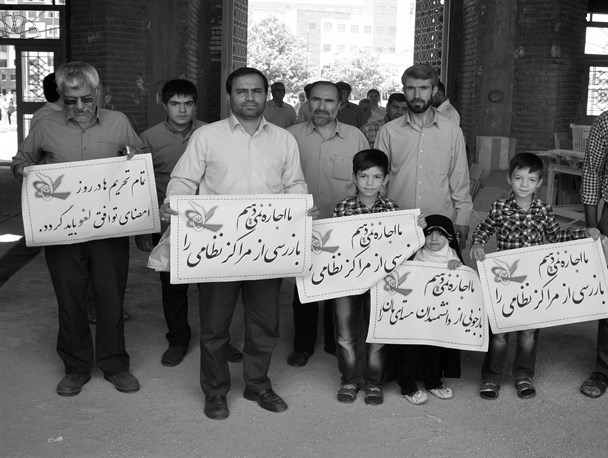 تمام تحریم ها در روز
امضای توافق لغو باید گردد.
ما اجازه نمی دهیم
بازرسی از مراکز نظامی را
ما اجازه نمی دهیم
بازرسی از مراکز نظامی را
ما اجازه نمی دهیم
بازجویی از دانشمندان هسته ای مان را
ما اجازه نمی دهیم
بازرسی از مراکز نظامی را